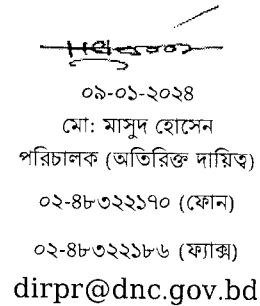 ০৯-০১-২০২৪
মো: মাসুদ হোসেন
পরিচালক (অতিরিক্ত দায়িত্ব)
০২-৪৮৩২২১৭০ (ফোন)
০২-৪৮৩২২১৮৬ (ফ্যাক্স)
dirpr@dnc.gov.bd